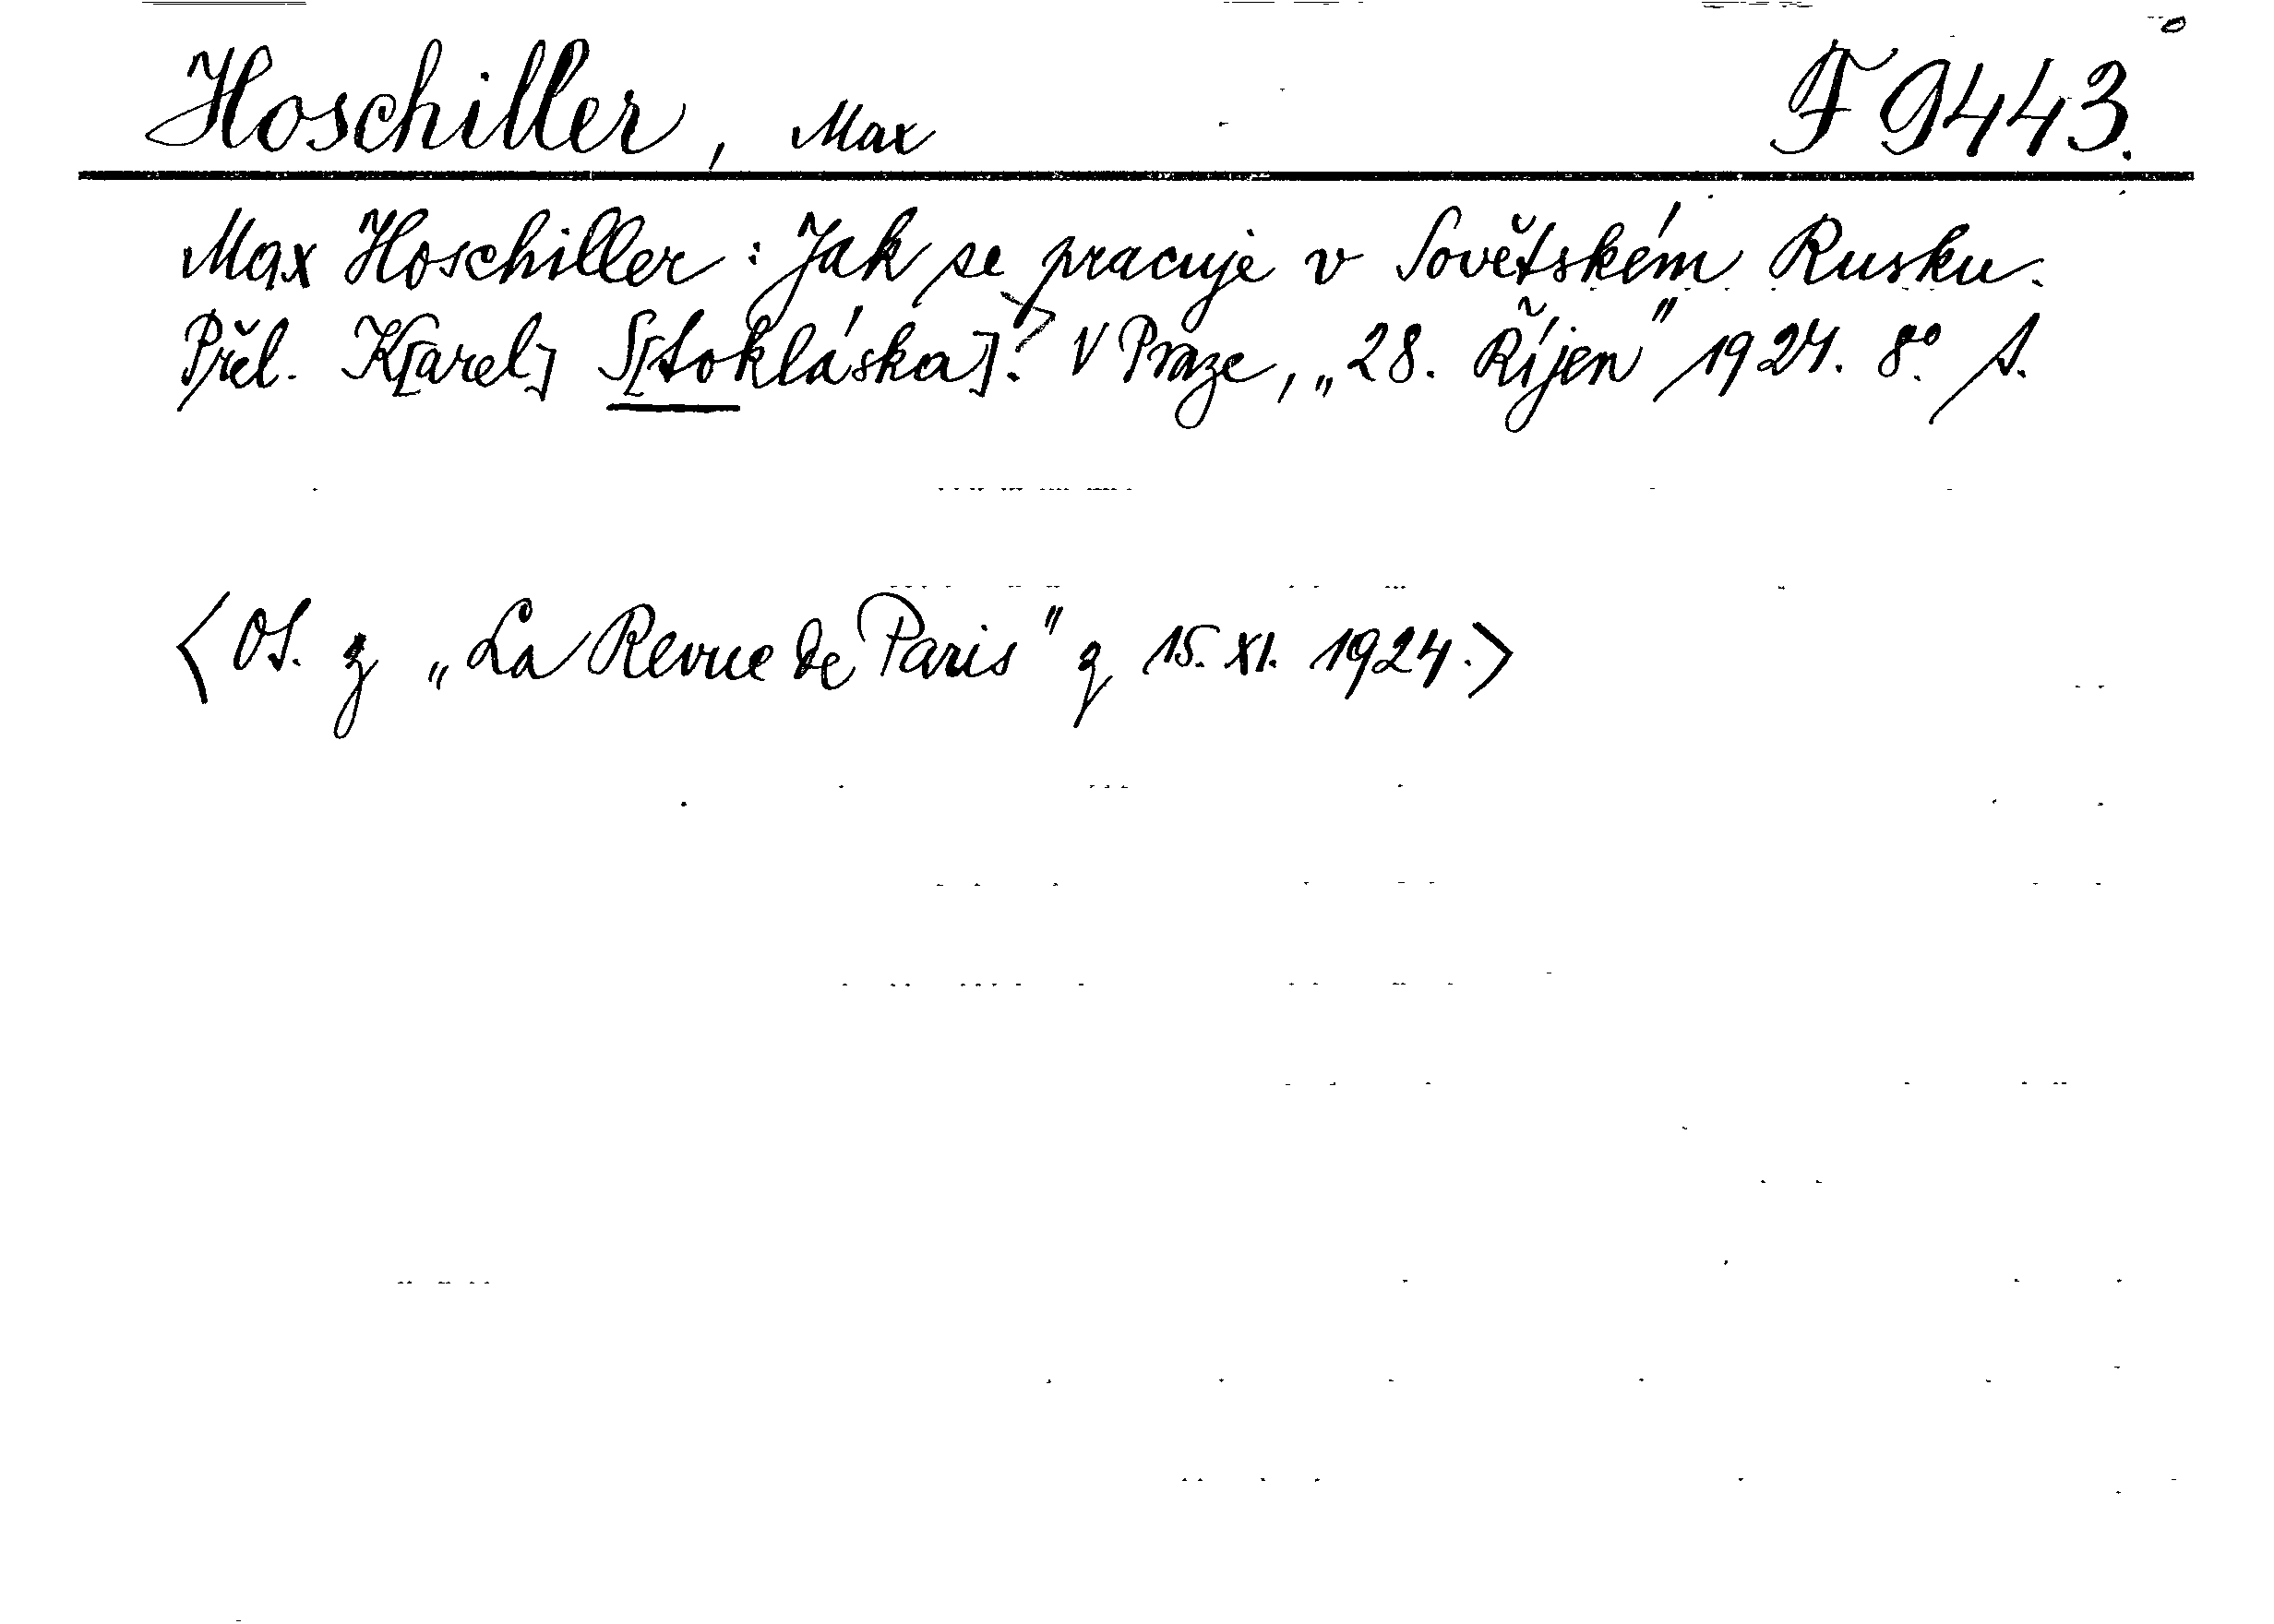 Hoschiller, Max F 9443.
Max Hoschiller: Jak se pracuje v Sovětském Rusku.
Přel. K[arel] S[tokláska]. V Praze, „28. Říjen" 1924. 8° S.
<OS. z „La Revue de Paris" z 15. XI. 1924.>